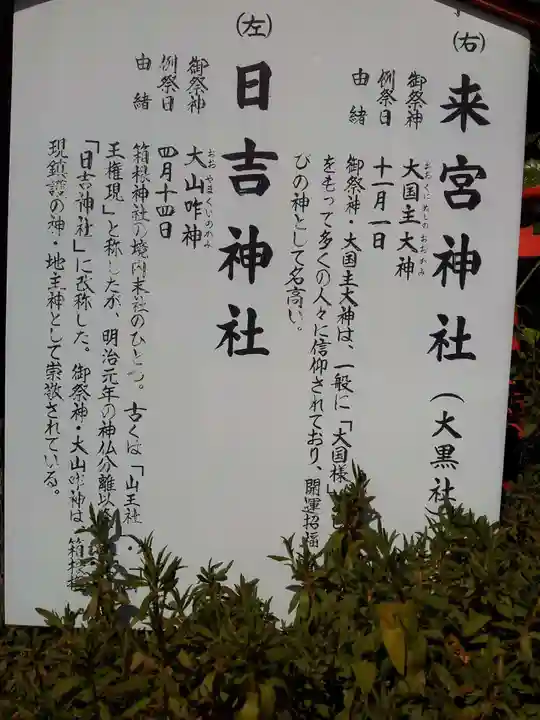 (右)
来宮神社(大黒社)
御祭神 大国主大神
おおくにぬしのおおかみ
例祭日 十一月一日
由緒 御祭神・大国主大神は、一般に「大国様
をもって多くの人々に信仰されており、開運招福
びの神として名高い。
(左)
日吉神社
御祭神 大山咋神
おおやまくいのかみ
例祭日 四月十四日
由緒 箱根神社の境内末社のひとつ。古くは「山王社・
王権現」と称したが、明治元年の神仏分離以
「日吉神社」に改称した。御祭神・大山咋神は、箱根
現鎮護の神・地主神として崇敬されている。